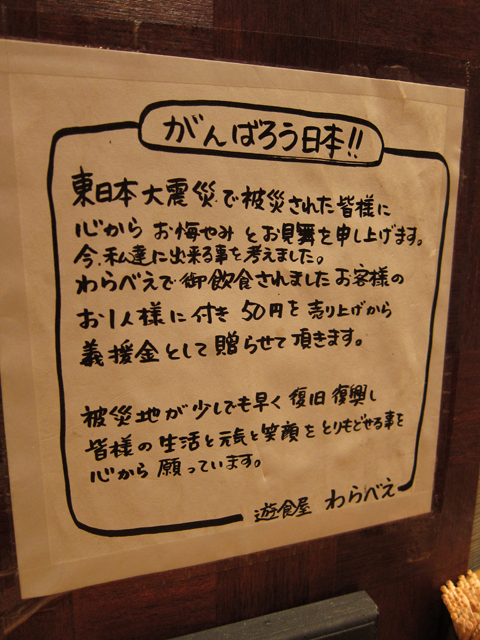 がんばろう日本!!
東日本大震災で被災された皆様に
心からお悔やみとお見舞を申し上げます。
今、私達に出来る事を考えました。
わらべえで御飲食されましたお客様の
お1人様に付き50円を売り上げから
義援金として贈らせて頂きます。
被災地が少しでも早く復旧復興し
皆様の生活と元気と笑顔をとりもどせる事を
心から願っています。
遊食屋 わらべえ